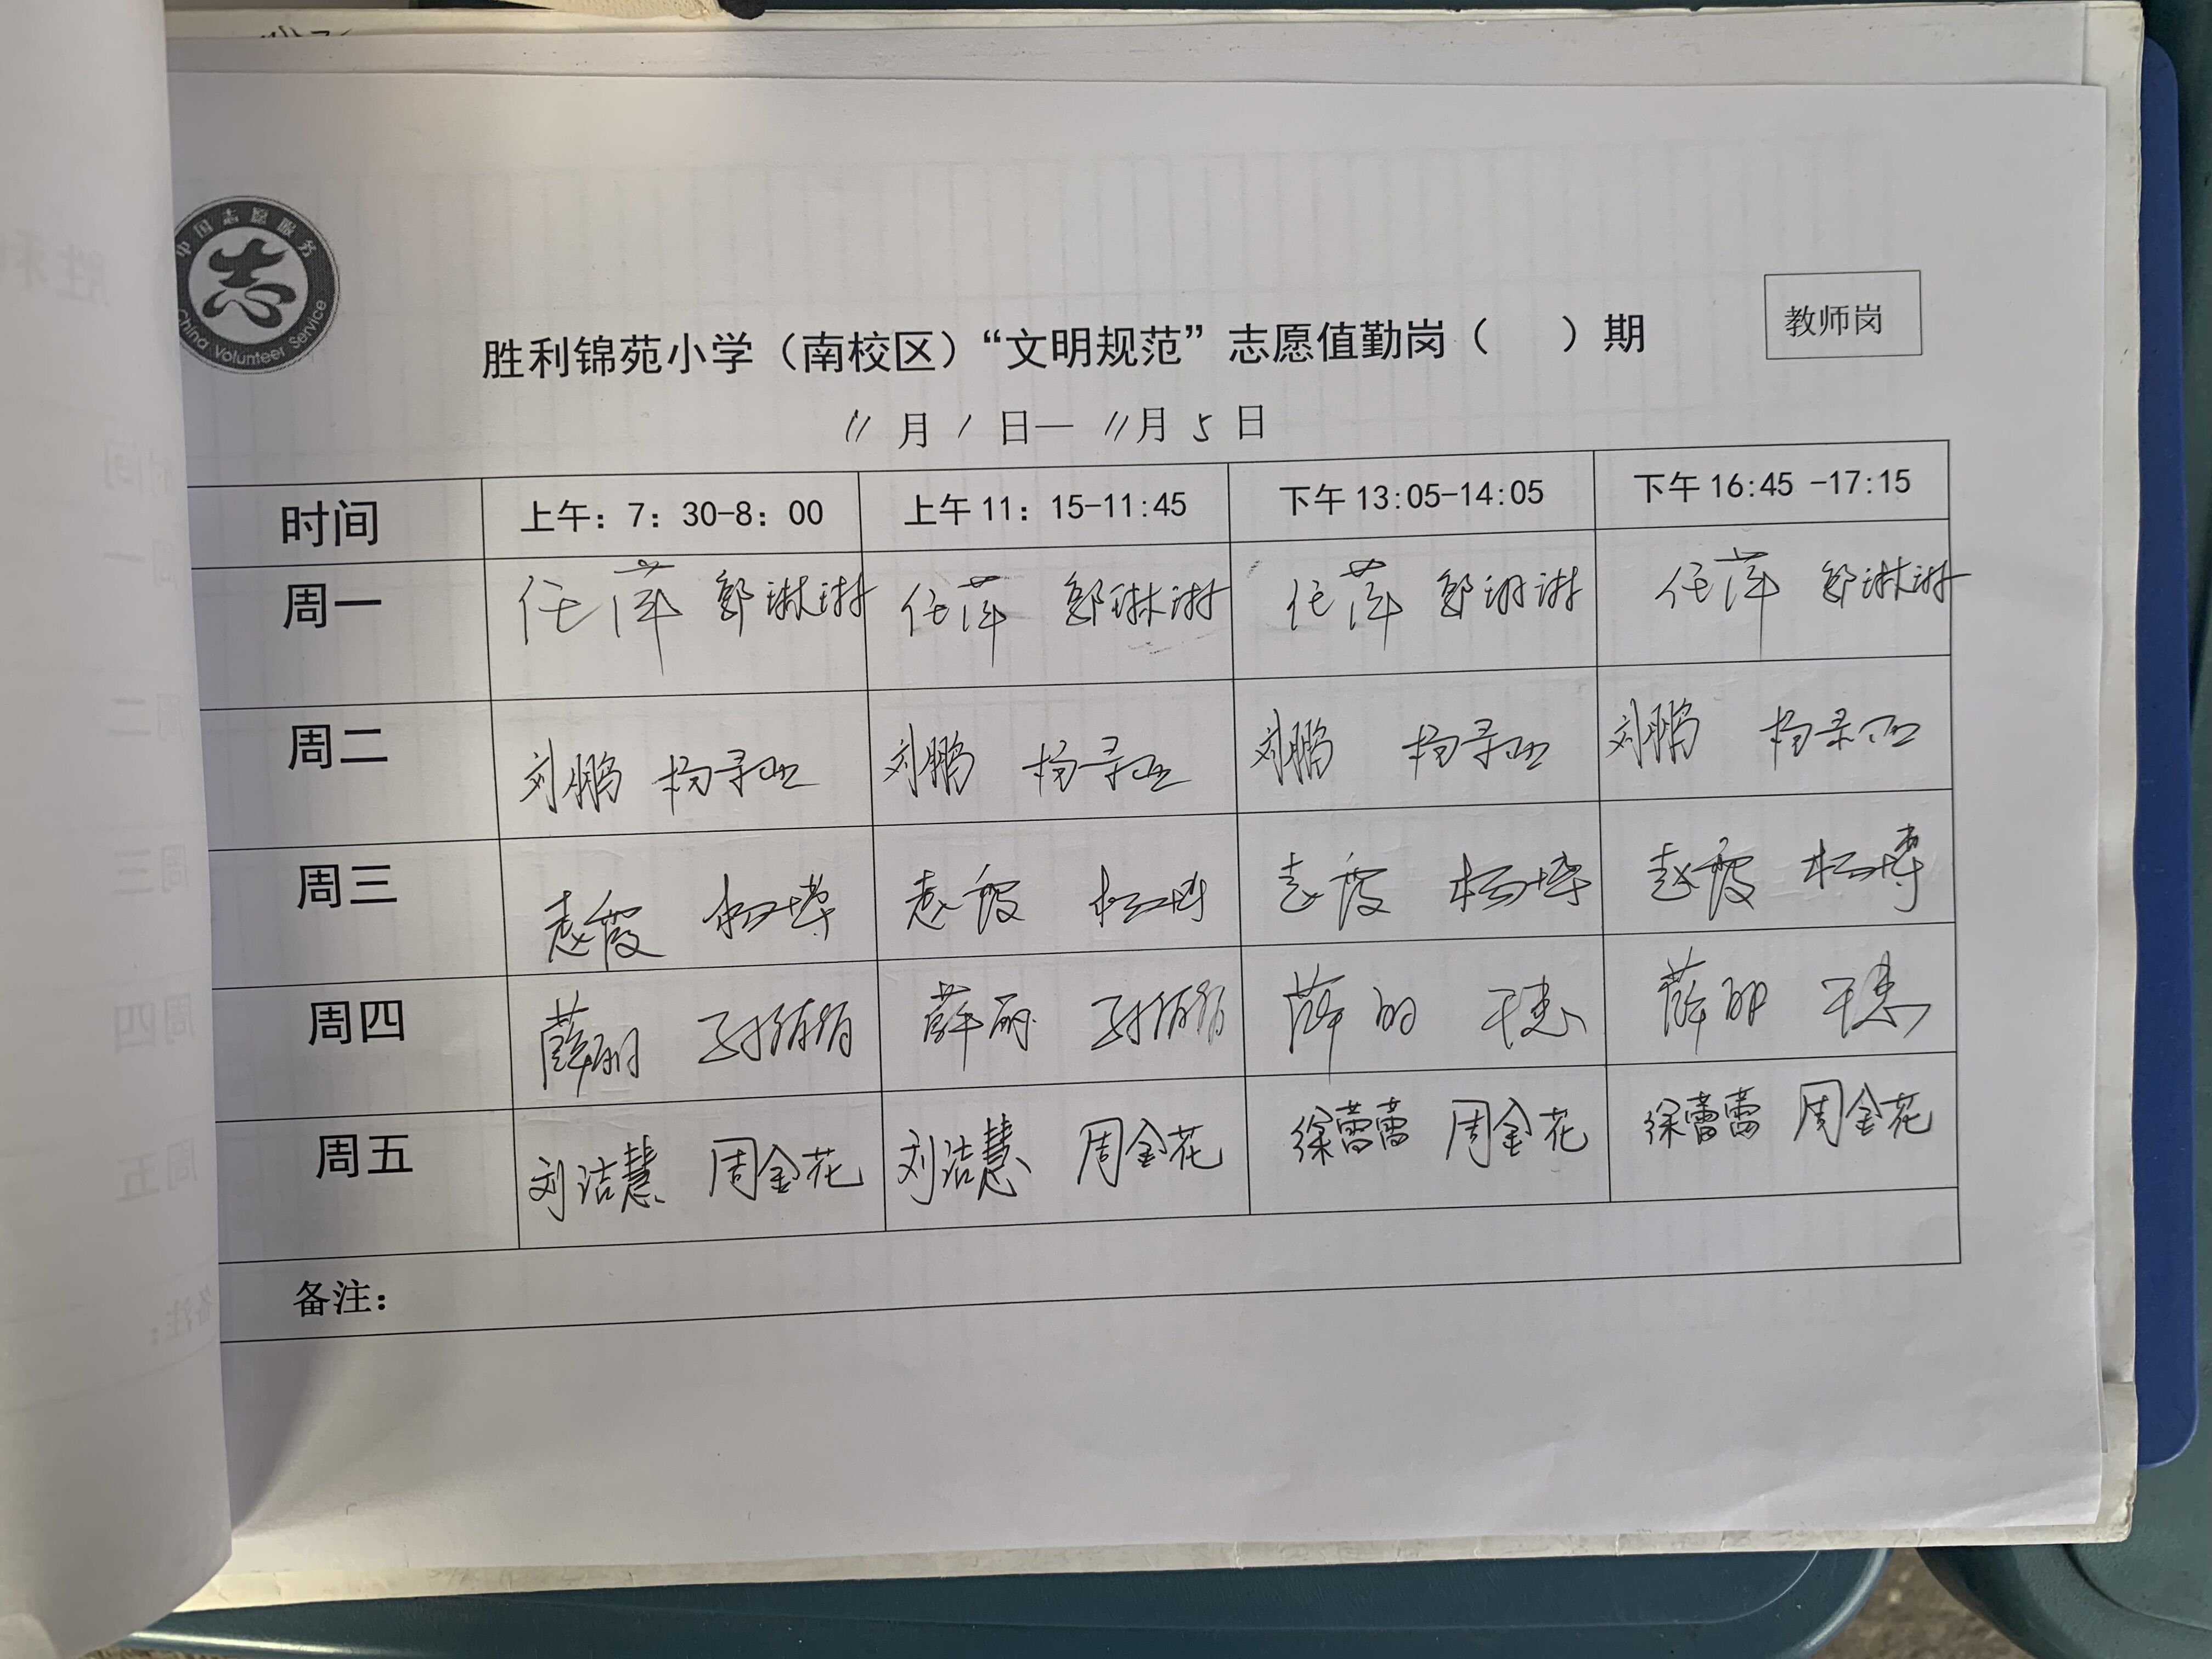 中国志愿服务
志
China Volunteer Service
教师岗
胜利锦苑小学（南校区）“文明规范”志愿值勤岗（　　）期
11月1日—11月5日
时间 上午：7：30-8：00 上午11：15-11:45 下午13:05-14:05 下午16:45 -17:15
周一 任萍 郭琳琳 任萍 郭琳琳 任萍 郭琳琳 任萍 郭琳琳
周二 刘鹏 杨 刘鹏 杨 刘鹏 杨 刘鹏 杨
周三 赵霞 杨博 赵霞 杨博 赵霞 杨博 赵霞 杨博
周四 薛丽 孙娟娟 薛丽 孙娟娟 薛丽 薛丽
周五 刘洁慧 周金花 刘洁慧 周金花 徐蕾蕾 周金花 徐蕾蕾 周金花
备注：